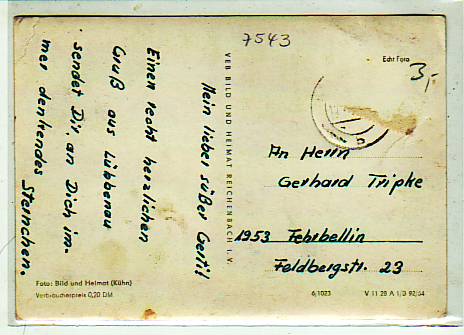 7543
Echt Foto
3,-
Mein lieber süßer Gertil
Einen recht herzlichen
Gruß aus Lübbenau
sendet Dir, an Dich im-
mer denkendes
Sternchen.
VEB BILD UND HEIMAT REICHENBACH I. V.
An Herrn
Gerhard Tripke
1953 Fehrbellin
Feldbergstr. 23
Foto: Bild und Heimat (Kühn)
Verbraucherpreis 0,20 DM
6/1023
V 11 28 A 1/B 92/64